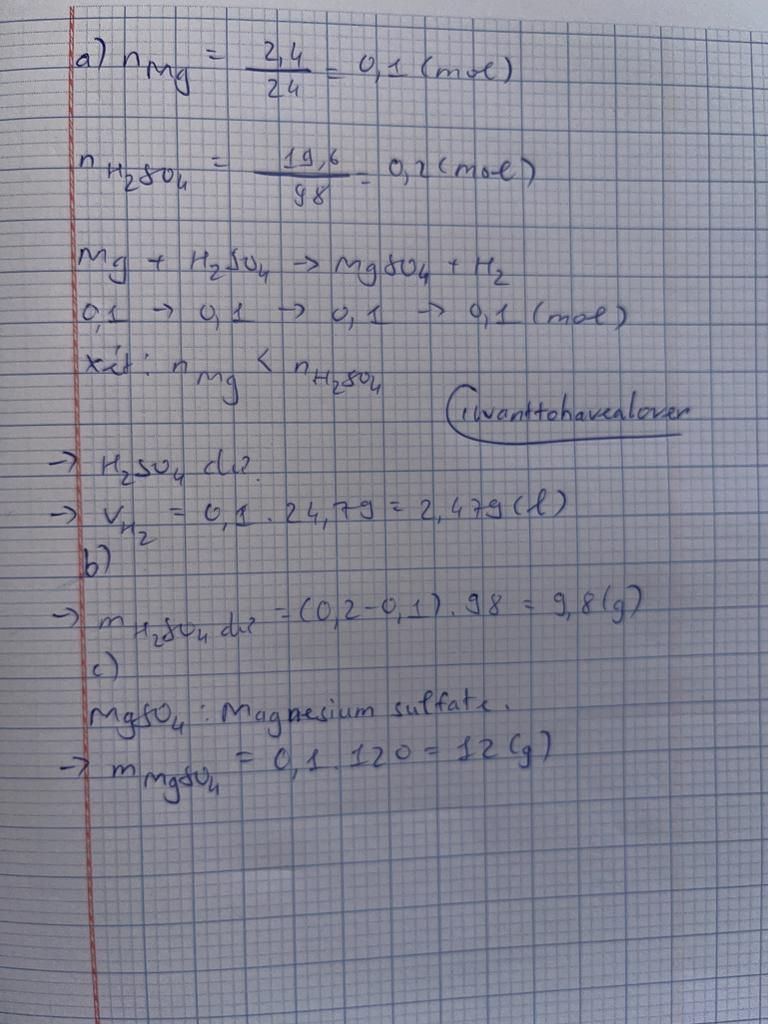 a) n_Mg = 2,4/24 = 0,1 (mol)
n_H₂SO₄ = 19,6/98 = 0,2 (mol)
Mg + H₂SO₄ → MgSO₄ + H₂
0,1 → 0,1 → 0,1 → 0,1 (mol)
Xét: n_Mg < n_H₂SO₄
iwanttohavealover
→ H₂SO₄ dư.
→ V_H₂ = 0,1 . 24,79 = 2,479 (l)
b)
→ m_H₂SO₄ dư = (0,2 - 0,1) . 98 = 9,8 (g)
c)
MgSO₄ : Magnesium sulfate.
→ m_MgSO₄ = 0,1 . 120 = 12 (g)